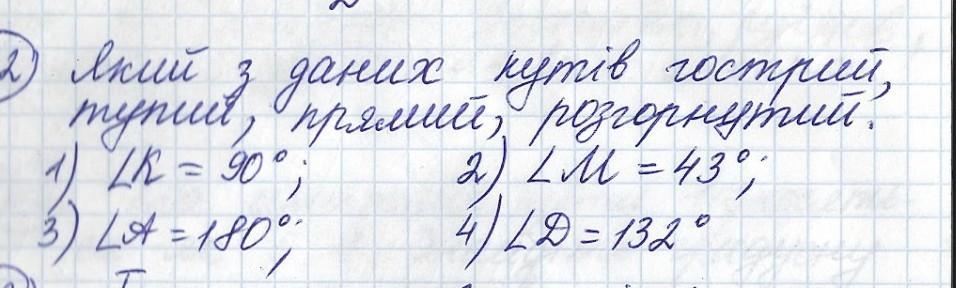 2) Який з даних кутів гострий,
тупий, прямий, розгорнутий.
1) ∠K = 90°; 2) ∠M = 43°;
3) ∠A = 180°; 4) ∠D = 132°